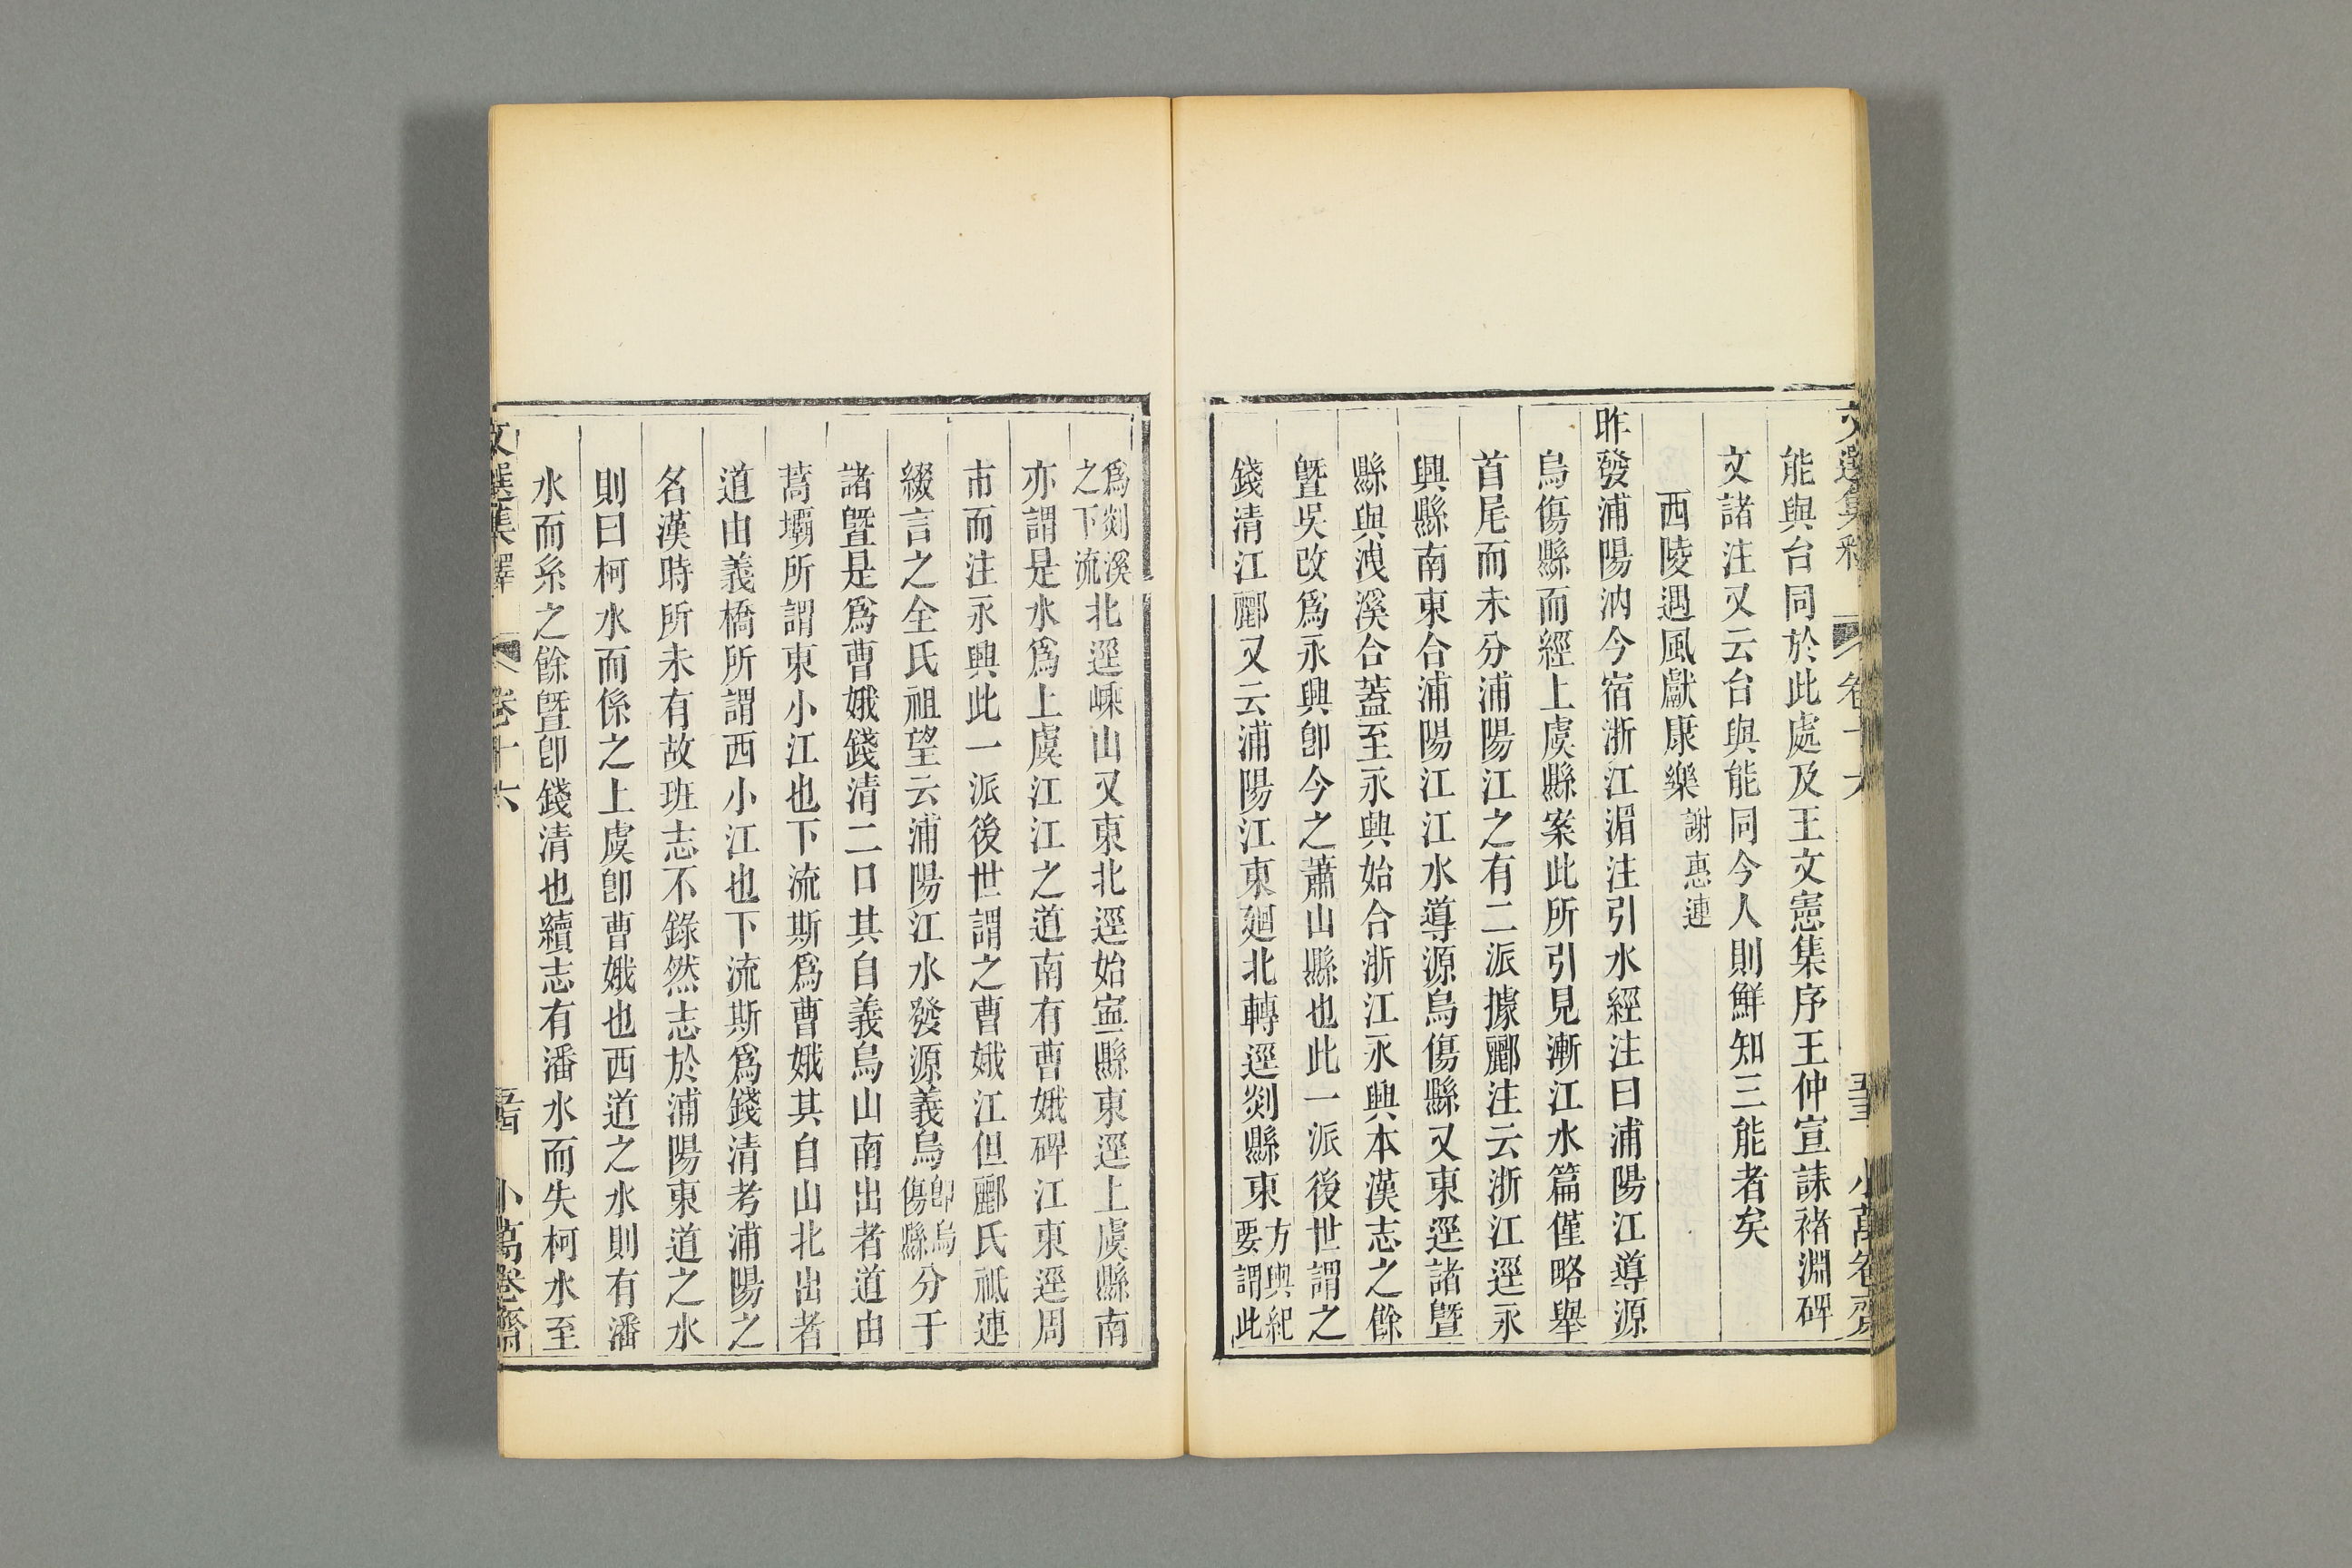 文選集釋 卷十六 小萬卷齋
能與台同於此處及王文憲集序王仲宣誄褚淵碑
文諸注又云台與能同今人則鮮知三能者矣
西陵遇風獻康樂 謝惠連
昨發浦陽汭今宿浙江湄注引水經注曰浦陽江導源
烏傷縣而經上虞縣案此所引見漸江水篇僅略舉
首尾而未分浦陽江之有二派據酈注云浙江逕永
興縣南東合浦陽江江水導源烏傷縣又東逕諸曁
縣與洩溪合蓋至永興始合浙江永興本漢志之餘
曁吳改爲永興卽今之蕭山縣也此一派後世謂之
錢清江酈又云浦陽江東廻北轉逕剡縣東方輿紀要謂此
爲剡溪之下流北逕嵊山又東北逕始寧縣東逕上虞縣南
亦謂是水爲上虞江江之道南有曹娥碑江東逕周
市而注永興此一派後世謂之曹娥江但酈氏祗連
綴言之全氏祖望云浦陽江水發源義烏卽烏傷縣分于
諸曁是爲曹娥錢清二口其自義烏山南出者道由
蒿壩所謂東小江也下流斯爲曹娥其自山北出者
道由義橋所謂西小江也下流斯爲錢清考浦陽之
名漢時所未有故班志不錄然志於浦陽東道之水
則曰柯水而係之上虞卽曹娥也西道之水則有潘
水而系之餘曁卽錢清也續志有潘水而失柯水至
文選集釋 卷十六 小萬卷齋